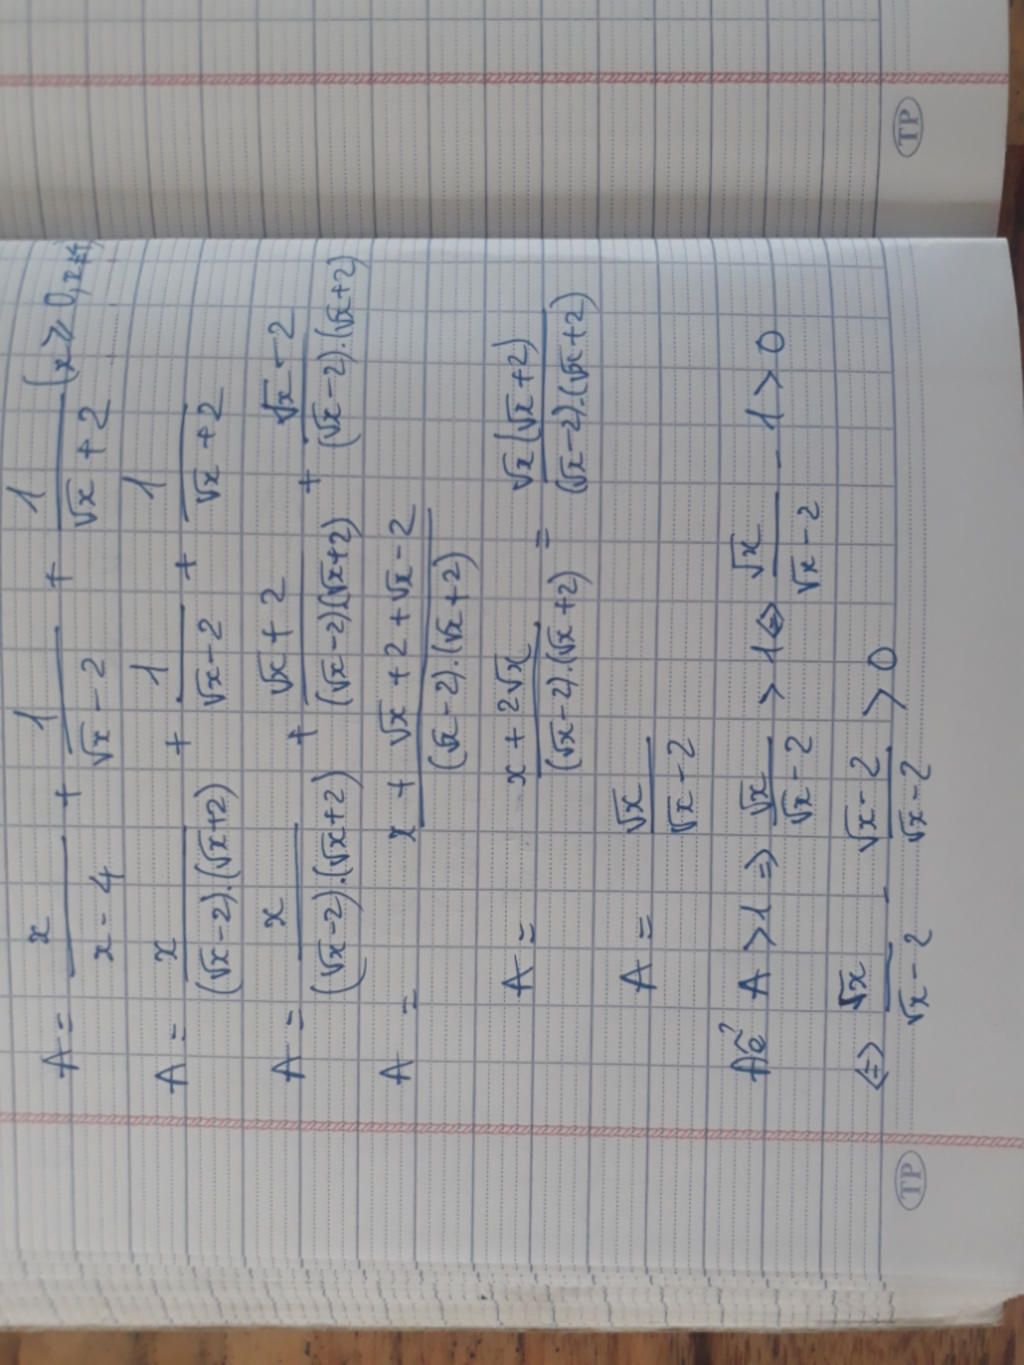 A = x/(x - 4) + 1/(√x - 2) + 1/(√x + 2) (x ≥ 0, x ≠ 4)
A = x/((√x - 2).(√x + 2)) + 1/(√x - 2) + 1/(√x + 2)
A = x/((√x - 2).(√x + 2)) + (√x + 2)/((√x - 2)(√x + 2)) + (√x - 2)/((√x - 2).(√x + 2))
A = (x + √x + 2 + √x - 2)/((√x - 2).(√x + 2))
A = (x + 2√x)/((√x - 2).(√x + 2)) = (√x(√x + 2))/((√x - 2).(√x + 2))
A = √x/(√x - 2)
A > 1 => √x/(√x - 2) > 1 <=> √x/(√x - 2) - 1 > 0
<=> √x/(√x - 2) - (√x - 2)/(√x - 2) > 0
TP
TP